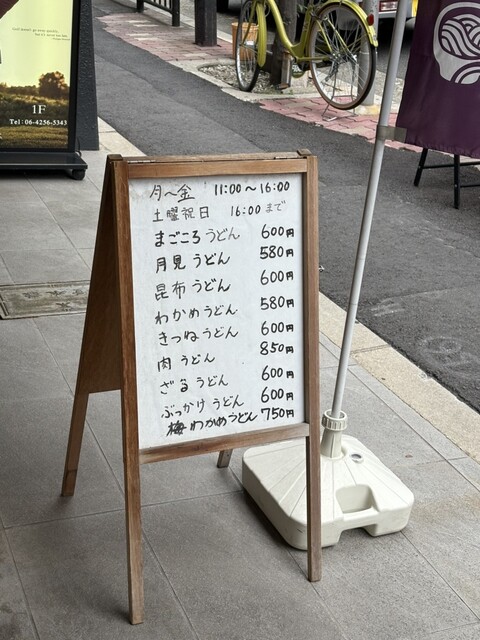 1F
Tel : 06-4256-5343
月～金 11:00～16:00
土曜祝日 16:00まで
まごころうどん 600円
月見うどん 580円
昆布うどん 600円
わかめうどん 580円
きつねうどん 600円
肉うどん 850円
ざるうどん 600円
ぶっかけうどん 600円
梅わかめうどん 750円